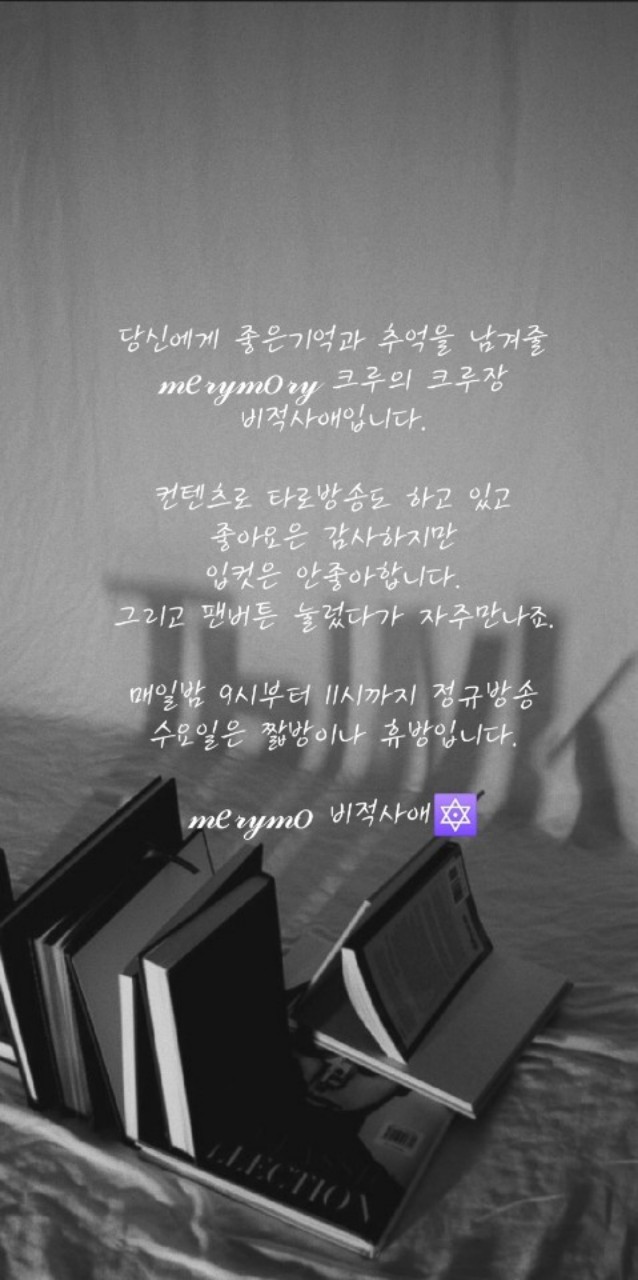 당신에게 좋은기억과 추억을 남겨줄
merymory 크루의 크루장
비적사애입니다.
컨텐츠로 타로방송도 하고 있고
좋아요은 감사하지만
입컷은 안좋아합니다.
그리고 팬버튼 눌렀다가 자주만나죠.
매일밤 9시부터 11시까지 정규방송
수요일은 짧방이나 휴방입니다.
merymo 비적사애🔯
LLECTION